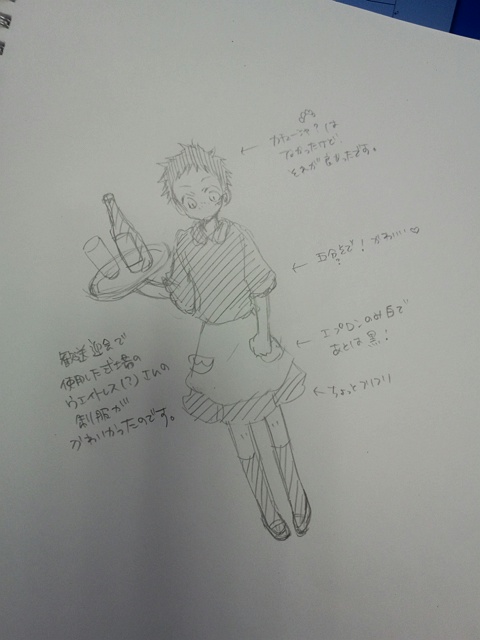 カチューシャ?は
なかったけど
それが良かったです。
五分そで!かわいい♡
エプロンのみ白で
あとは黒!
ちょっとフリフリ
歓送迎会で
使用した式場の
ウエイトレス(?)さんの
制服が
かわいかったのです。